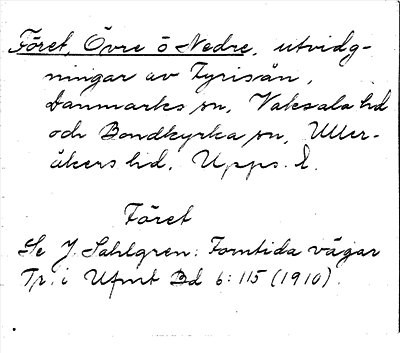 Föret, Övre o Nedre, utvidg-
ningar av Fyrisån,
Danmarks sn, Vaksala hd
och Bondkyrka sn, Uller-
åkers hd, Upps. l.
Föret
Se J. Sahlgren: Forntida vägar
Tr. i Ufmt Bd 6:115 (1910).